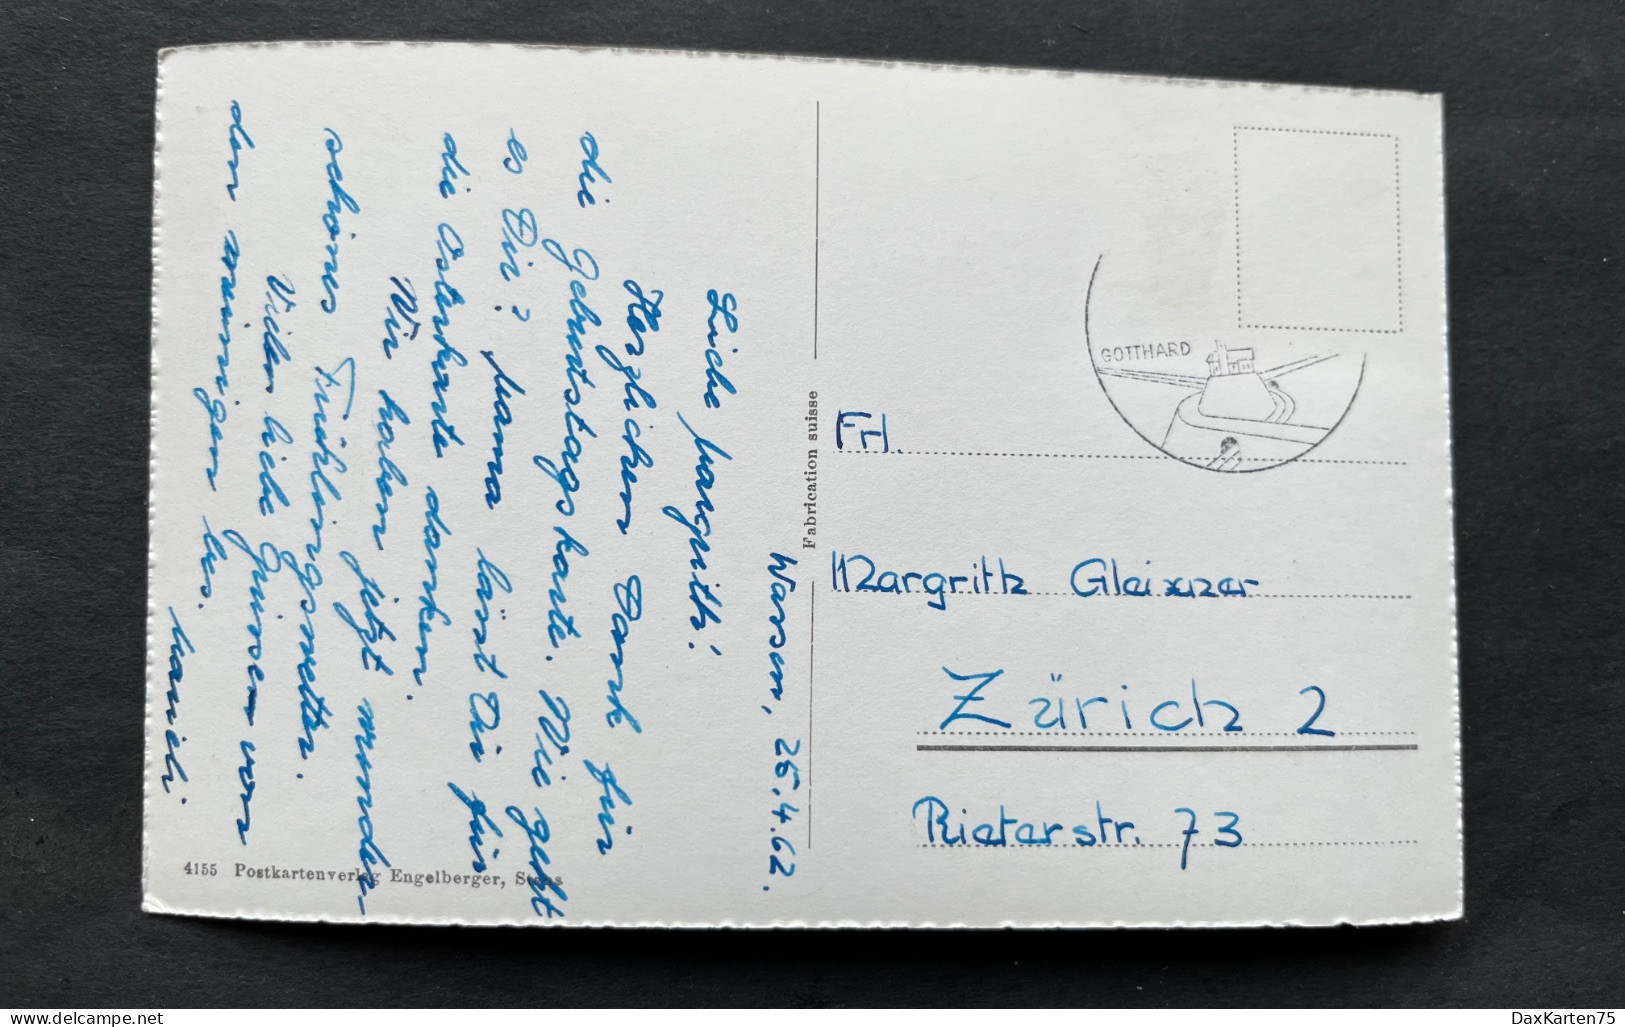 Wassen, 25.4.62.
Liebe Margrith!
Herzlichen Dank für
die Geburtstagskarte. Wie geht
es Dir? Mama lässt Dir für
die Osterkarte danken.
Wir haben jetzt wunder-
schönes Frühlingswetter.
Viele liebe Grüsse von
den meinigen
4155 Postkartenverlag Engelberger, Stans
Fabrication suisse
GOTTHARD
Frl.
Margrith Gleixner
Zürich 2
Rieterstr. 73
DaxKarten75